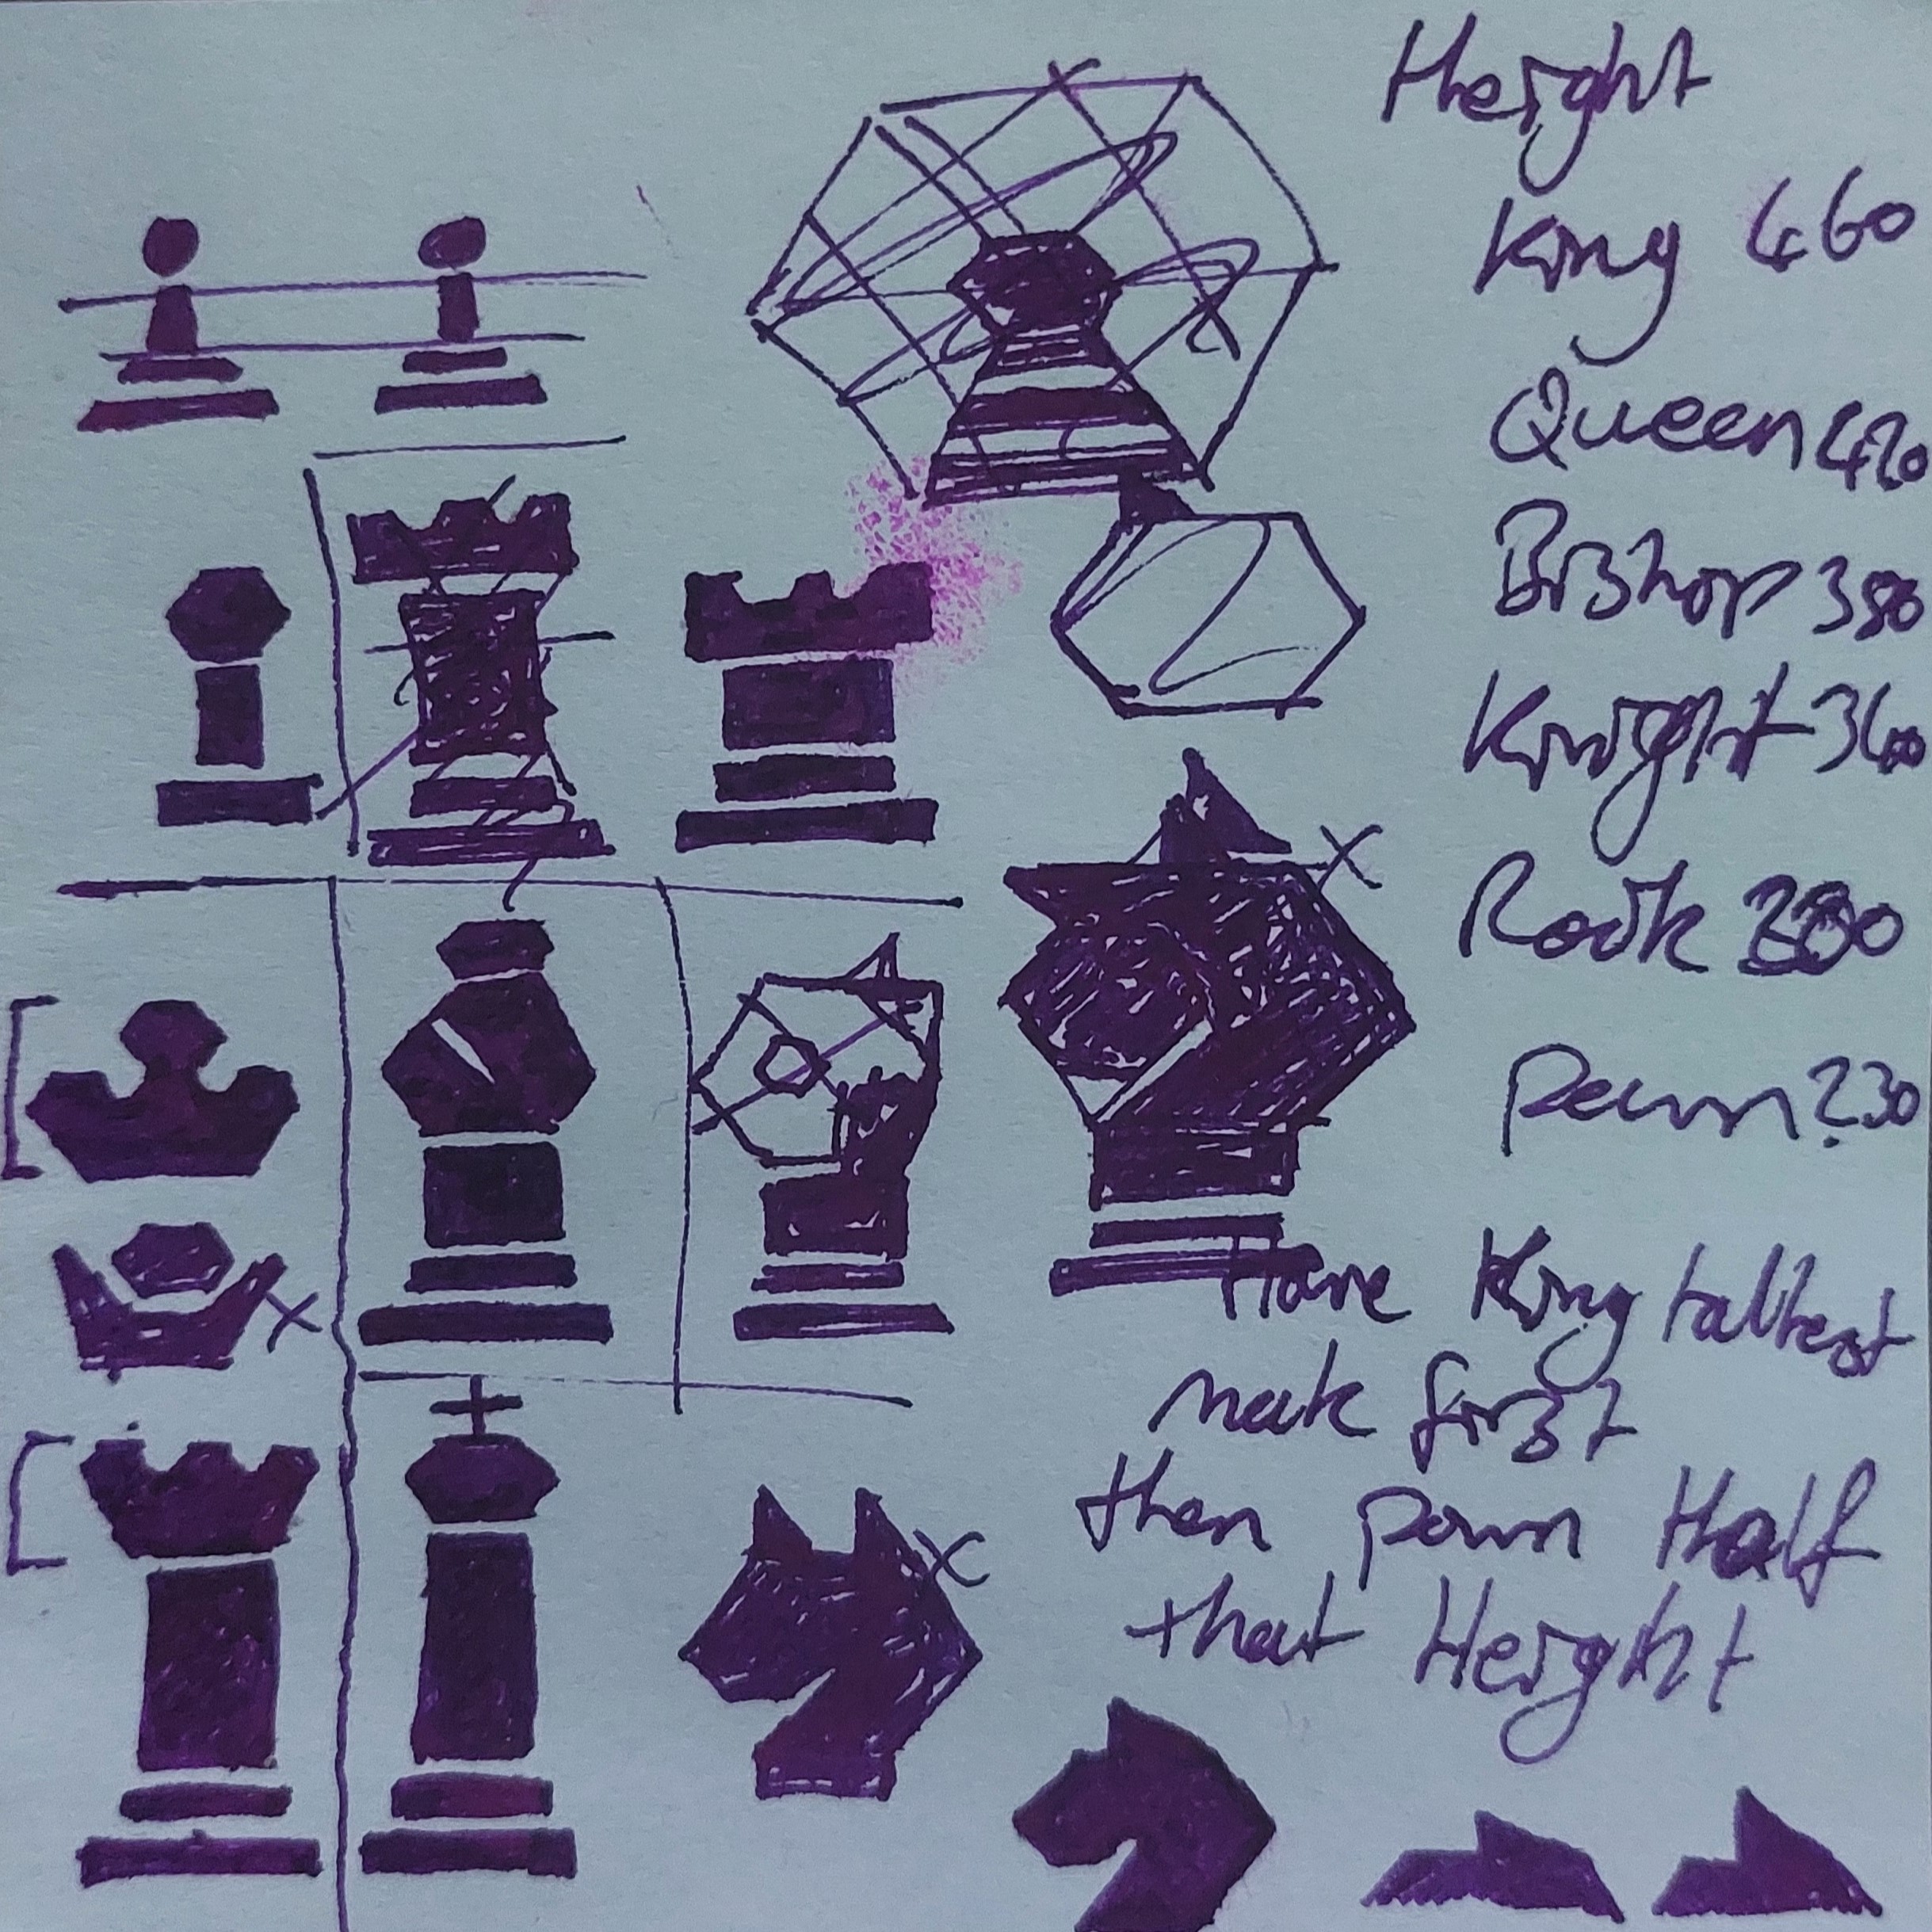 Height
King 460
Queen 420
Bishop 380
Knight 340
Rook
Pawn 230
Have King tallest
make first
then pawn Half
that Height